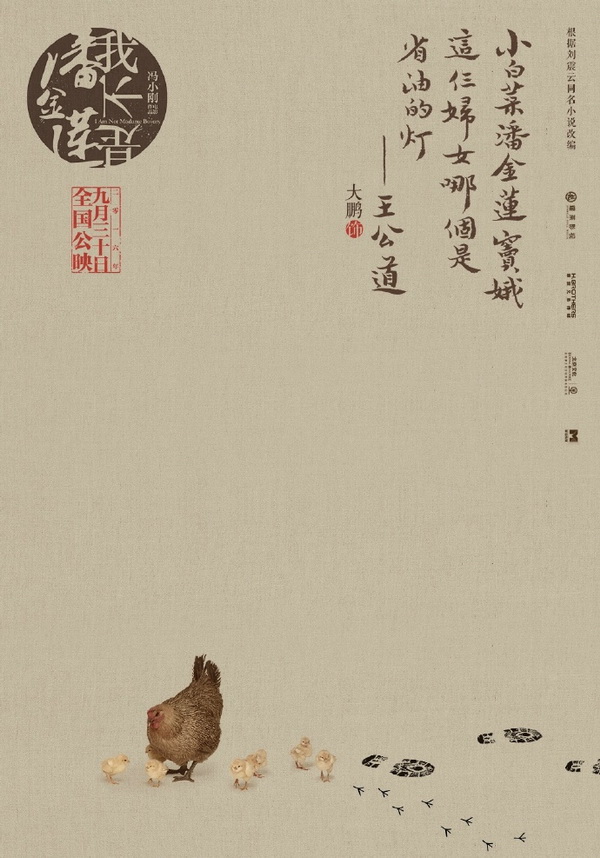 我不是
潘金莲
冯小刚
I Am Not Madame Bovary
二零一六年
九月三十日
全国公映
小白菜潘金蓮竇娥
這仨婦女哪個是
省油的灯
——王公道
大鹏饰
根据刘震云同名小说改编
H.BROTHERS